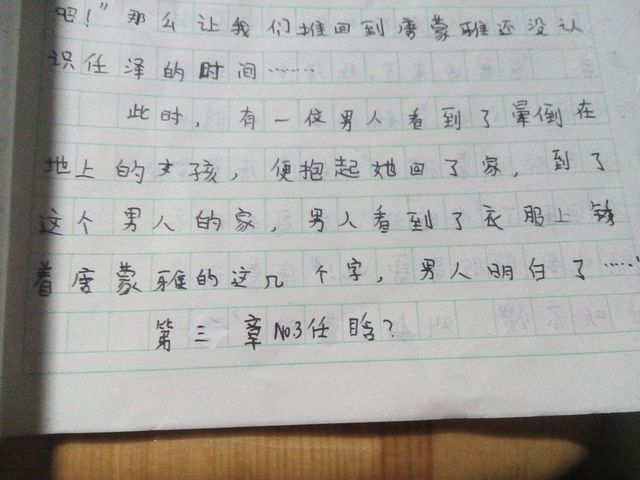 吧！”那么让我们推回到唐蒙雅还没认
识任泽的时间……
此时，有一位男人看到了晕倒在
地上的女孩，便抱起她回了家，到了
这个男人的家，男人看到了衣服上锈
着唐蒙雅的这几个字，男人明白了……
第三章No3任晗？